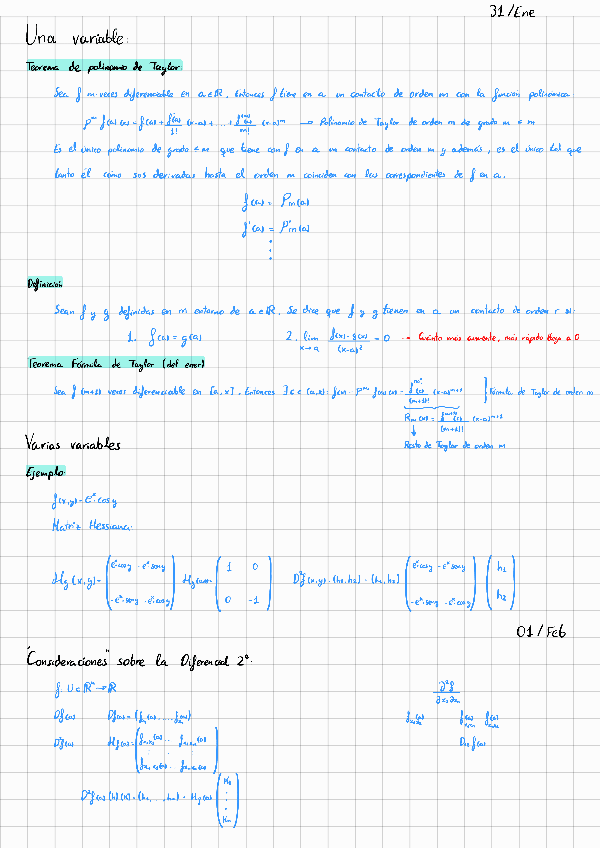 31/Ene
Una variable:
Teorema de polinomio de Taylor
Sea f m-veces diferenciable en a∈ℝ. Entonces f tiene en a un contacto de orden m con la función polinómica
Pᵐ f(a)(x) = f(a) + f'(a)/1! (x-a) + ... + f⁽ᵐ⁾(a)/m! (x-a)ᵐ → Polinomio de Taylor de orden m de grado m ≤ m
Es el único polinomio de grado ≤ m que tiene con f en a un contacto de orden m y además, es el único tal que
tanto él como sus derivadas hasta el orden m coinciden con las correspondientes de f en a.
f(a) = Pm(a)
f'(a) = P'm(a)
⋮
Definición
Sean f y g definidas en m entorno de a∈ℝ. Se dice que f y g tienen en a un contacto de orden r si:
1. f(a) = g(a) 2. lim x→a f(x)-g(x)/(x-a)ʳ = 0 → Cuanto más aumente, más rápido llega a 0
Teorema Fórmula de Taylor (def error)
Sea f (m+1) veces diferenciable en [a,x]. Entonces ∃ c∈(a,x): f(x) - Pᵐ f(a)(x) = f⁽ᵐ⁺¹⁾(c)/(m+1)! (x-a)ᵐ⁺¹ } Fórmula de Taylor de orden m
Rm(x) = f⁽ᵐ⁺¹⁾(c)/(m+1)! (x-a)ᵐ⁺¹
↓
Resto de Taylor de orden m
Varias variables
Ejemplo:
f(x,y) = eˣ·cosy
Matriz Hessiana:
Hf(x,y) = (eˣcosy -eˣseny / -eˣ·seny -eˣ·cosy) = (1 0 / 0 -1) D²f(x,y)·(h₁,h₂) = (h₁,h₂) (eˣcosy -eˣseny / -eˣ·seny -eˣcosy) (h₁ / h₂)
01/Feb
"Consideraciones" sobre la Diferencial 2ª.
f: U⊂ℝⁿ→ℝ ∂²f/∂x₂∂x₁
Df(a) Df(a) = (fx₁(a) ... fxₙ(a))
D²f(a) Hf(a) = (fx₁x₁(a) ... fx₁xₙ(a) / fxₙx₁(a) ... fxₙxₙ(a))
D₁₂f(a)
D²f(a)(h)(k) = (h₁, ..., hₙ) · Hf(a) (K₁ ⋮ Kₙ)